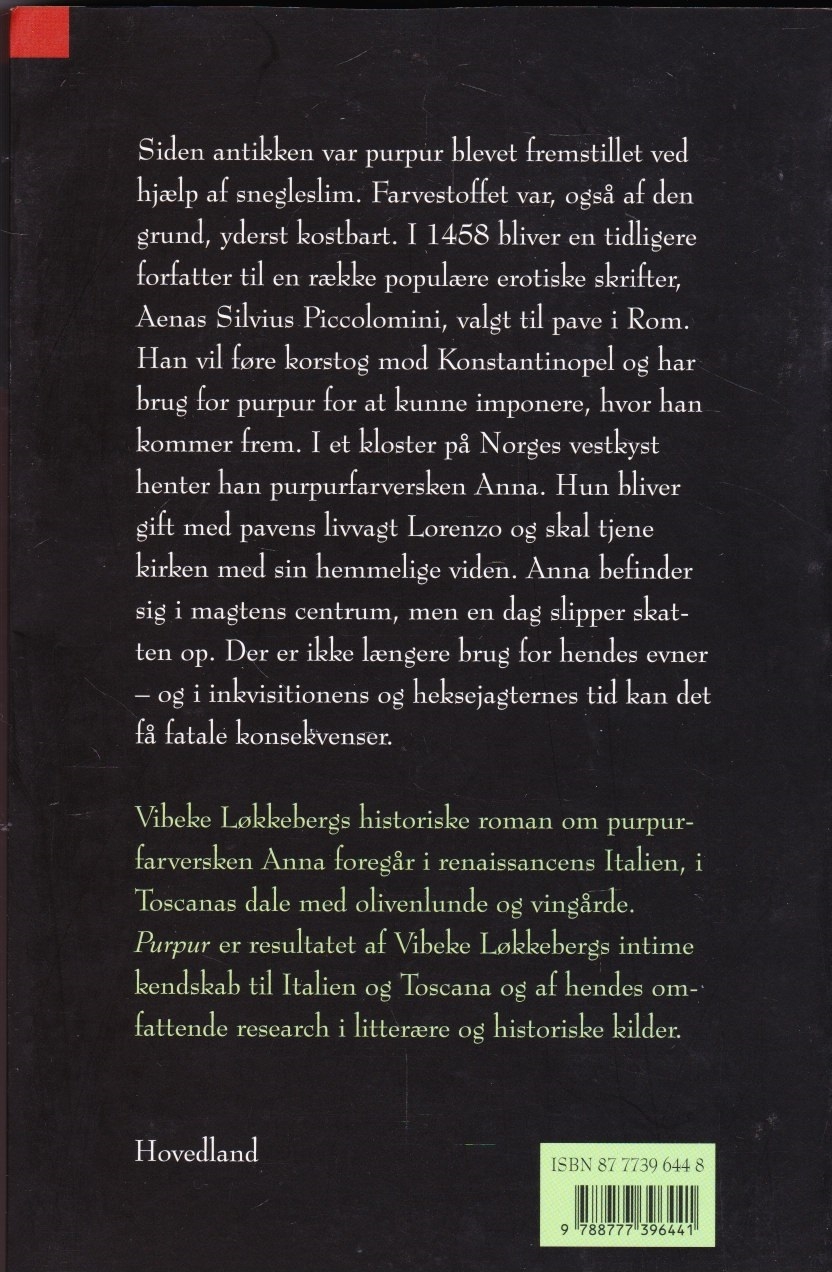 Siden antikken var purpur blevet fremstillet ved
hjælp af snegleslim. Farvestoffet var, også af den
grund, yderst kostbart. I 1458 bliver en tidligere
forfatter til en række populære erotiske skrifter,
Aenas Silvius Piccolomini, valgt til pave i Rom.
Han vil føre korstog mod Konstantinopel og har
brug for purpur for at kunne imponere, hvor han
kommer frem. I et kloster på Norges vestkyst
henter han purpurfarversken Anna. Hun bliver
gift med pavens livvagt Lorenzo og skal tjene
kirken med sin hemmelige viden. Anna befinder
sig i magtens centrum, men en dag slipper skat-
ten op. Der er ikke længere brug for hendes evner
– og i inkvisitionens og heksejagternes tid kan det
få fatale konsekvenser.
Vibeke Løkkebergs historiske roman om purpur-
farversken Anna foregår i renaissancens Italien, i
Toscanas dale med olivenlunde og vingårde.
Purpur er resultatet af Vibeke Løkkebergs intime
kendskab til Italien og Toscana og af hendes om-
fattende research i litterære og historiske kilder.
Hovedland
ISBN 87 7739 644 8
9 788777 396441